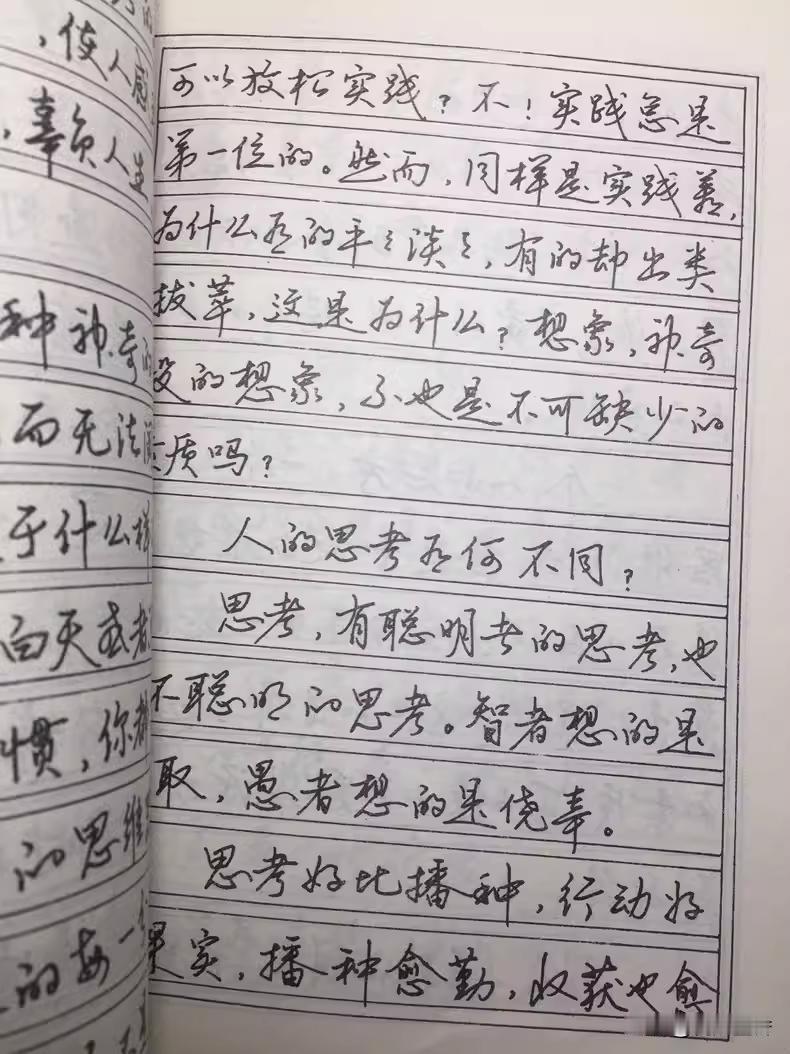 ，使人
，辜负人生
种神奇的
而无法
于什么样
白天或者
惯，你都
的思维
的每一
可以放松实践？不！实践总是
第一位的。然而，同样是实践着，
为什么有的平々淡々，有的却出类
拔萃，这是为什么？想象，神奇
的想象，不也是不可缺少的
质吗？
人的思考有何不同？
思考，有聪明者的思考，也
不聪明的思考。智者想的是
取，愚者想的是侥幸。
思考好比播种，行动好
果实，播种愈勤，收获也愈